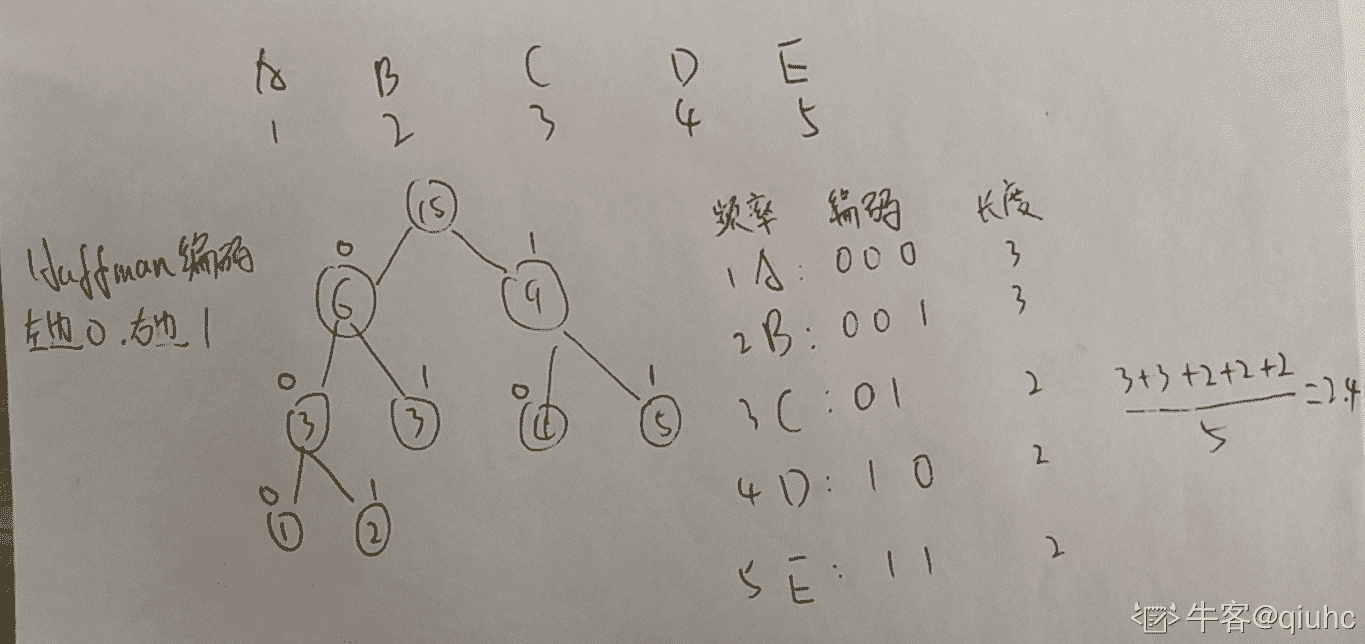 A B C D E
1 2 3 4 5
Huffman编码
左边0.右边1
15
0 1
6 9
0 1 0 1
3 3 4 5
0 1
1 2
频率 编码 长度
1 A: 000 3
2 B: 001 3
3 C: 01 2
4 D: 10 2
5 E: 11 2
3+3+2+2+2
5
=2.4
牛客@qiuhc